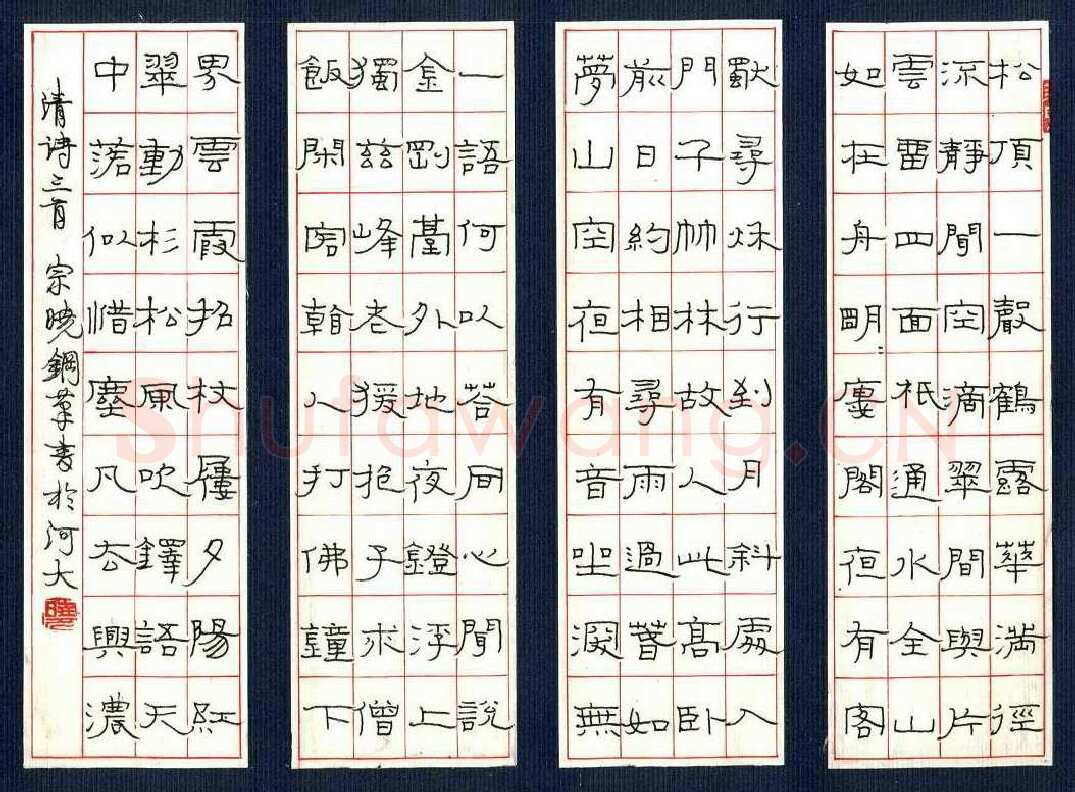 松頂一聲鶴露華滿徑
流靜聞空滴翠間與片
雲留四面祇通水全山
如在舟明廔閣夜有客
尋秋行到月斜處入
門子竹林故人此高臥
前日約相尋雨過暮如
夢山空夜有音坐深無
一語何以答同心聞說
金剛臺外地夜鐙浮上
獨茲峰老猨抱子求僧
飯閑幹人打佛鐘下
界雲霞招杖屨夕陽紅
翠動杉松風吹鐸語天
中落似惜塵凡去興濃
清诗三首 宗曉鋼筆書於河大
Shufawang.CN